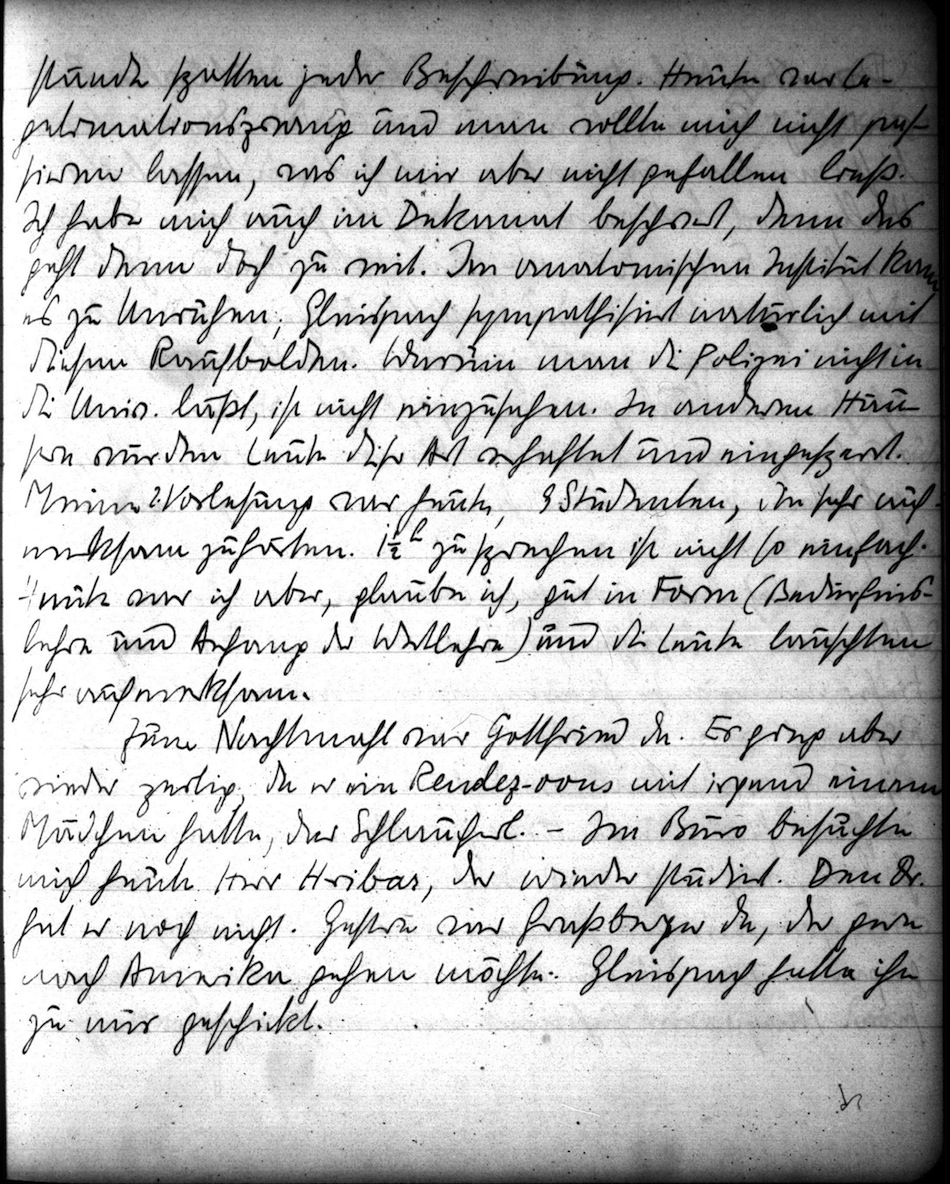 stände spotten jeder Beschreibung. Heute war Le-
gitimationszwang und man wollte mich nicht pas-
sieren lassen, was ich mir aber nicht gefallen ließ.
Ich habe mich auch im Dekanat beschwert, denn das
geht denn doch zu weit. Im anatomischen Institut kam
es zu Unruhen; Gleispach sympathisiert natürlich mit
diesen Raufbolden. Warum man die Polizei nicht in
die Univ. läßt, ist nicht einzusehen. In anderen Häu-
sern würden Leute dieser Art verhaftet und eingesperrt.
Meine 2. Vorlesung war heute, 9 Studenten, die sehr auf-
merksam zuhörten. 1½ h zu sprechen ist nicht so einfach.
Heute war ich aber, glaube ich, gut in Form (Bedürfnis-
lehre und Anfang der Wertlehre) und die Leute lauschten
sehr aufmerksam.
Zum Nachtmahl war Gottfried da. Er ging aber
wieder zeitig, da er ein Rendez-vous mit irgend einem
Mädchen hatte, der Schlaucherl. – Im Büro besuchte
mich heute Herr Hribar, der wieder studiert. Den Dr.
hat er noch nicht. Gestern war Graßberger da, der gern
nach Amerika gehen möchte. Gleispach hatte ihn
zu mir geschickt.